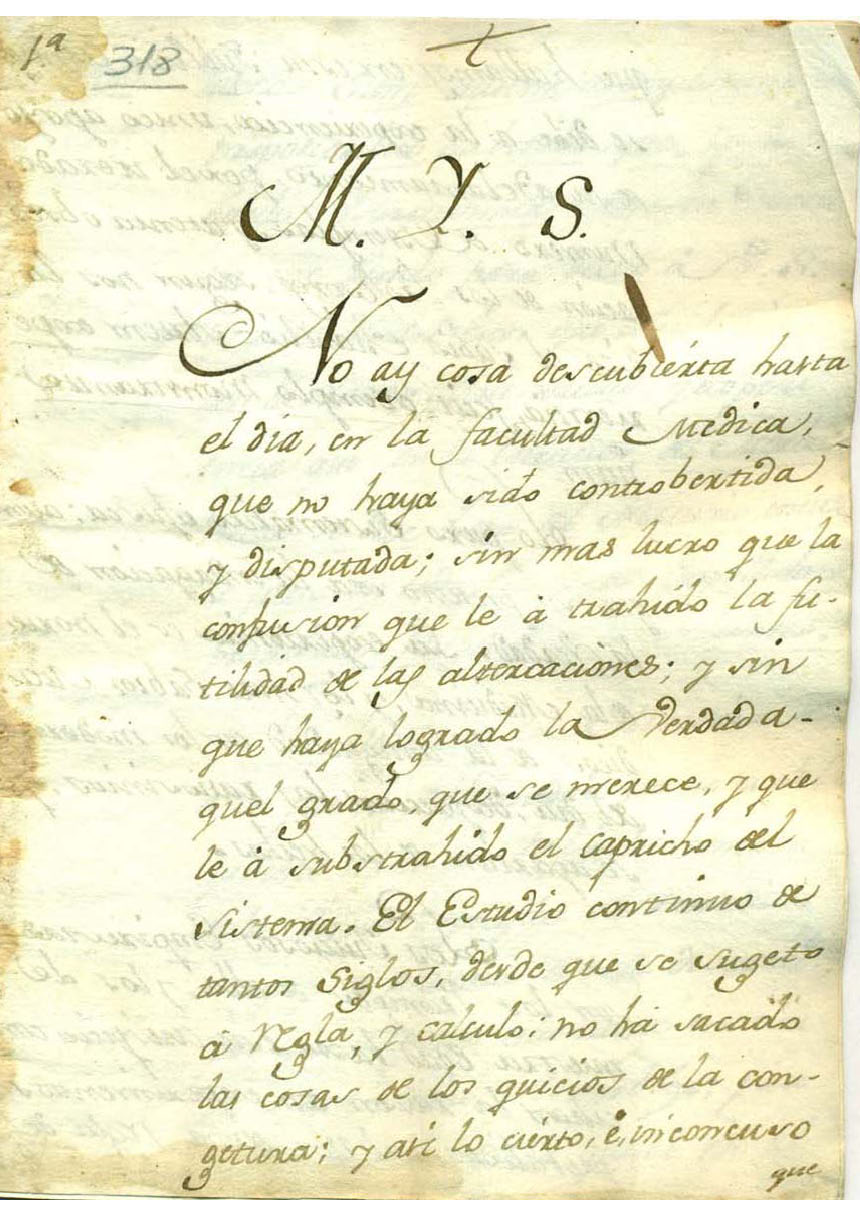 1ª
318
M. Y. S.
No ay cosa descubierta hasta
el dia, en la facultad Medica,
que no haya sido controbertida,
y disputada; sin mas lucro que la
confusion que le à trahido la fu-
tilidad de las altercaciones; y sin
que haya logrado la Verdad a-
quel grado, que se merece, y que
le à substrahido el capricho del
Sistema. El Estudio continuo de
tantos Siglos, desde que se sugeto
à regla, y calculo: no ha sacado
las cosas de los quicios de la con-
getura; y asi lo cierto, è, inconcuso
que